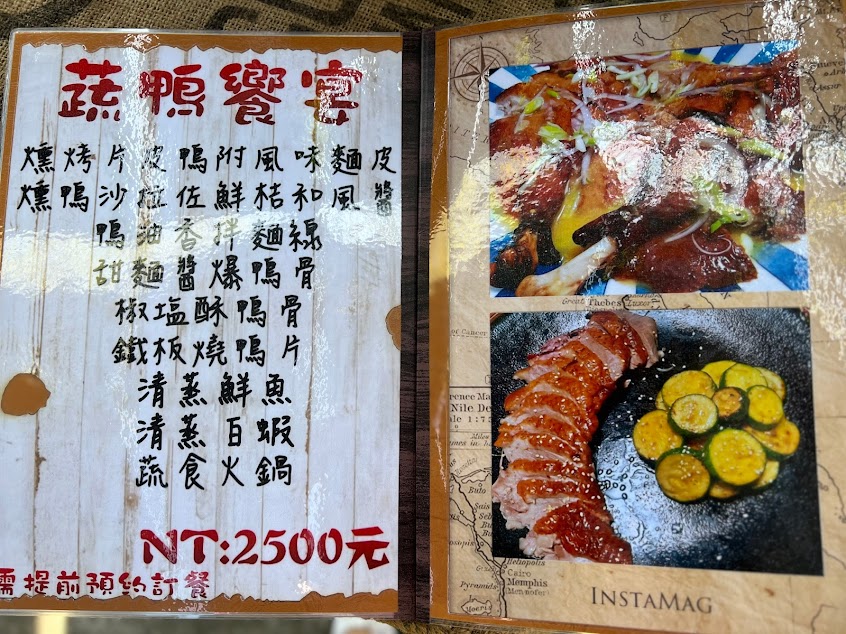 蔬鴨饗宴
燻烤片皮鴨附風味麵皮
燻鴨沙拉佐鮮桔和風醬
鴨油香拌麵線
甜麵醬爆鴨骨
椒塩酥鴨骨
鐵板燒鴨片
清蒸鮮魚
清蒸百蝦
蔬食火鍋
NT:2500元
需提前預約訂餐
Great Thebes
Luxor
of Cancer
Nile De
Miles
Buto
Sais
Heliopolis
Cairo
Memphis
Men nofer
Pyramids
INSTAMAG